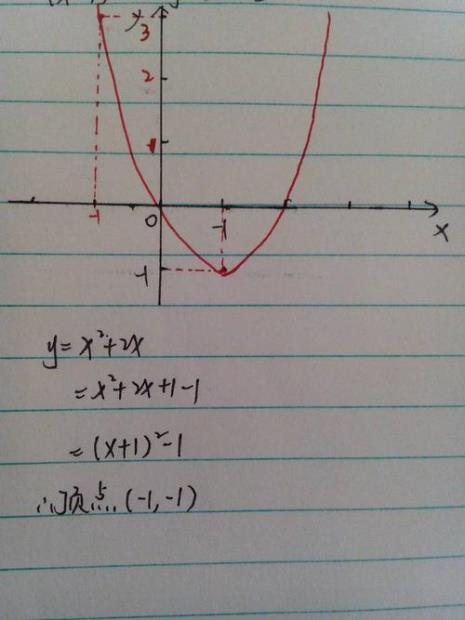 y 3
2
1
-1 0 -1 x
-1
y=x²+2x
=x²+2x+1-1
=(x+1)²-1
∴顶点(-1,-1)